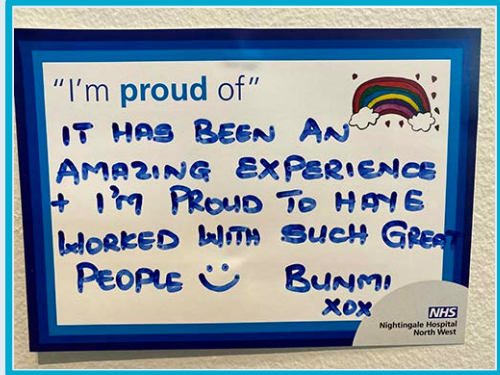 "I'm proud of"
IT HAS BEEN AN
AMAZING EXPERIENCE
+ I'M PROUD TO HAVE
WORKED WITH SUCH GREAT
PEOPLE BUNMI
XOX
NHS
Nightingale Hospital
North West